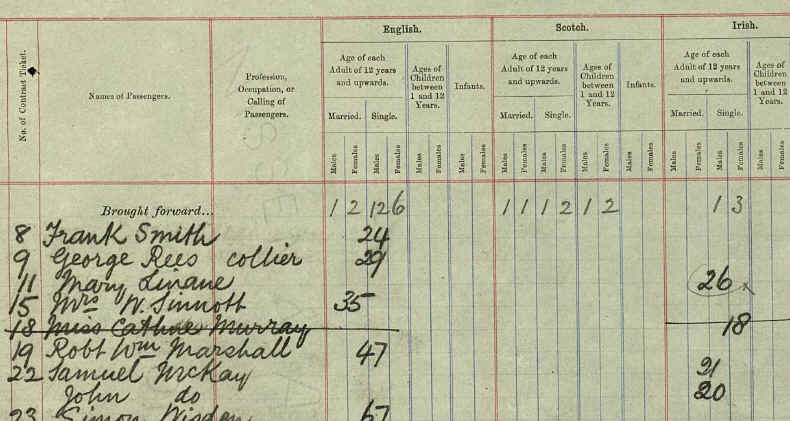 English. Scotch. Irish.
No. of Contract Ticket.
Names of Passengers.
Profession, Occupation, or Calling of Passengers.
Age of each Adult of 12 years and upwards. Ages of Children between 1 and 12 Years. Infants. Age of each Adult of 12 years and upwards. Ages of Children between 1 and 12 Years. Infants. Age of each Adult of 12 years and upwards. Ages of Children between 1 and 12 Years.
Married. Single. Married. Single. Married. Single.
Males Females Males Females Males Females Males Females Males Females Males Females Males Females Males Females Males Females Males Females Males Females
Brought forward... 1 2 12 6 1 1 1 2 1 2 1 3
8 Frank Smith 24
9 George Rees collier 29
11 Mary Linane 26
15 Mrs W. Sinnott 35
18 Miss Cathne Murray 18
19 Robt Wm Marshall 47
22 Samuel McKay 21
John do 20
23 Simon Wisdom 67